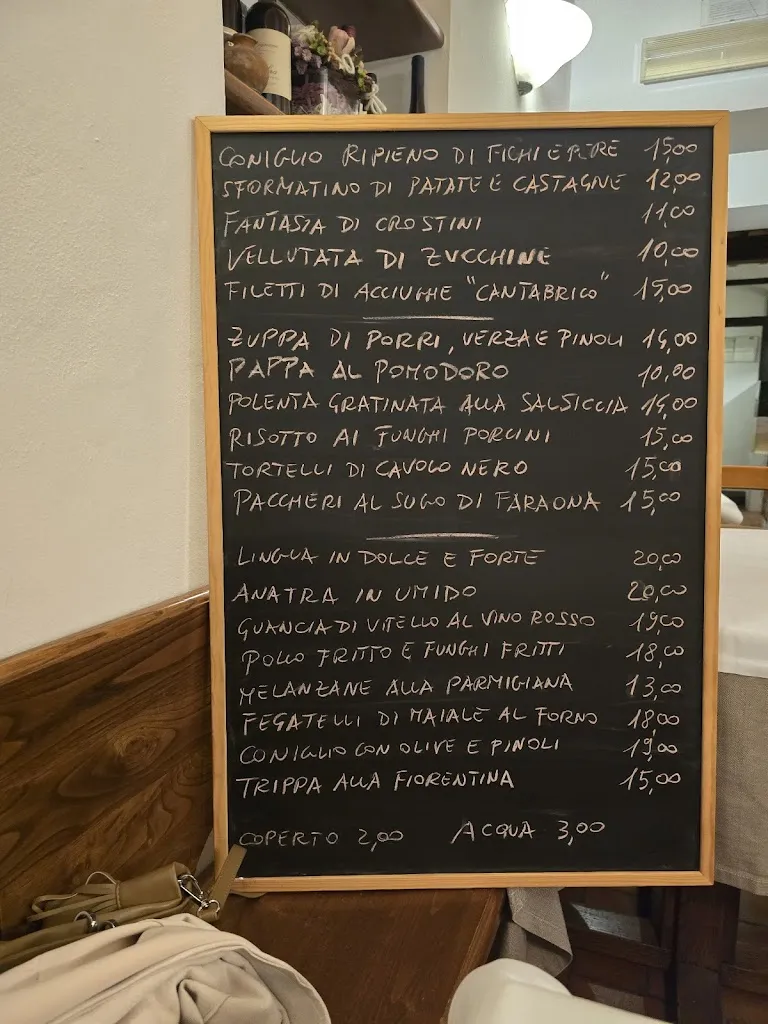 CONIGLIO RIPIENO DI FICHI E PERE 15,00
SFORMATINO DI PATATE E CASTAGNE 12,00
FANTASIA DI CROSTINI 11,00
VELLUTATA DI ZUCCHINE 10,00
FILETTI DI ACCIUGHE "CANTABRICO" 15,00
ZUPPA DI PORRI, VERZA E PINOLI 14,00
PAPPA AL POMODORO 10,00
POLENTA GRATINATA ALLA SALSICCIA 14,00
RISOTTO AI FUNGHI PORCINI 15,00
TORTELLI DI CAVOLO NERO 15,00
PACCHERI AL SUGO DI FARAONA 15,00
LINGUA IN DOLCE E FORTE 20,00
ANATRA IN UMIDO 20,00
GUANCIA DI VITELLO AL VINO ROSSO 19,00
POLLO FRITTO E FUNGHI FRITTI 18,00
MELANZANE ALLA PARMIGIANA 13,00
FEGATELLI DI MAIALE AL FORNO 18,00
CONIGLIO CON OLIVE E PINOLI 19,00
TRIPPA ALLA FIORENTINA 15,00
COPERTO 2,00 ACQUA 3,00